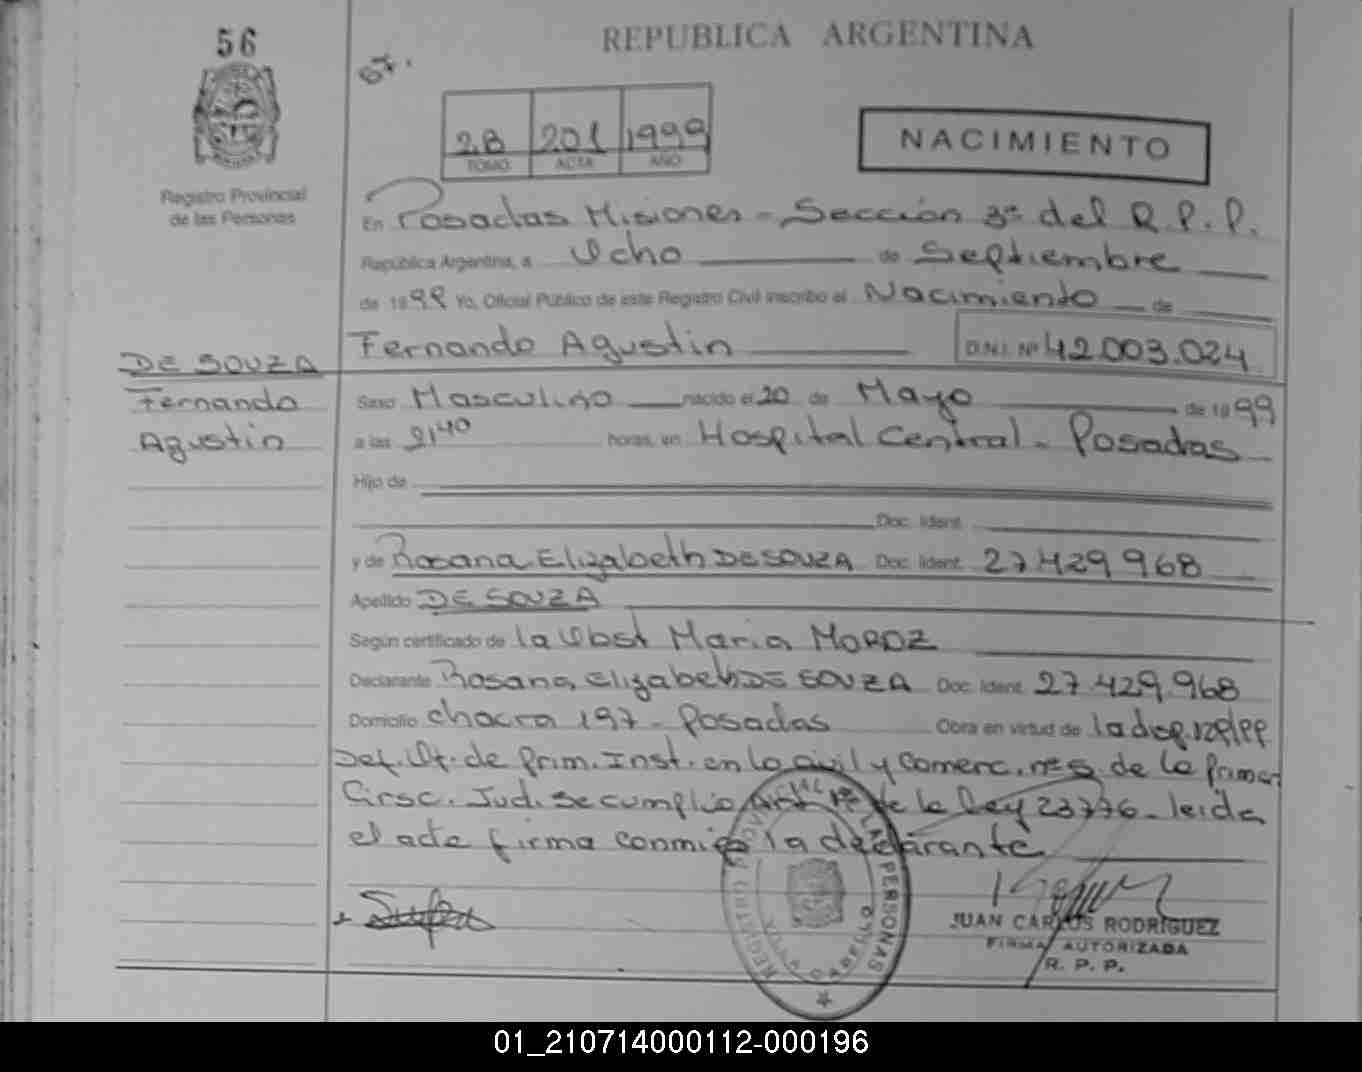 56
REPUBLICA ARGENTINA
67.
2B 201 1999
TOMO ACTA AÑO
NACIMIENTO
Registro Provincial
de las Personas
En Posadas Misiones - Sección 3ª del R.P.P.
República Argentina, a Ocho de Septiembre
de 1999 Yo, Oficial Público de este Registro Civil inscribo el Nacimiento de
Fernando Agustin D.N.I. Nº 42.003.024
DE SOUZA
Fernando
Agustin
Sexo Masculino nacido el 20 de Mayo de 1999
a las 2140 horas, en Hospital Central - Posadas
Hijo de
Doc. Ident.
y de Rosana Elizabeth DE SOUZA Doc. Ident. 27.429.968
Apellido DE SOUZA
Según certificado de la Obst Maria MOROZ
Declarante Rosana Elizabeth DE SOUZA Doc. Ident. 27.429.968
Domicilio chacra 197 - Posadas Obra en virtud de la disp.
Def. Of. de Prim. Inst. en lo civil y comerc. nº 5 de la primer
Cirsc. Jud. se cumplio Art. de la ley 23776 - leida
el acta firma conmigo la declarante
REGISTRO PROVINCIAL DE LAS PERSONAS
VILLA CABELLO
JUAN CARLOS RODRIGUEZ
FIRMA AUTORIZADA
R. P. P.
01_210714000112-000196